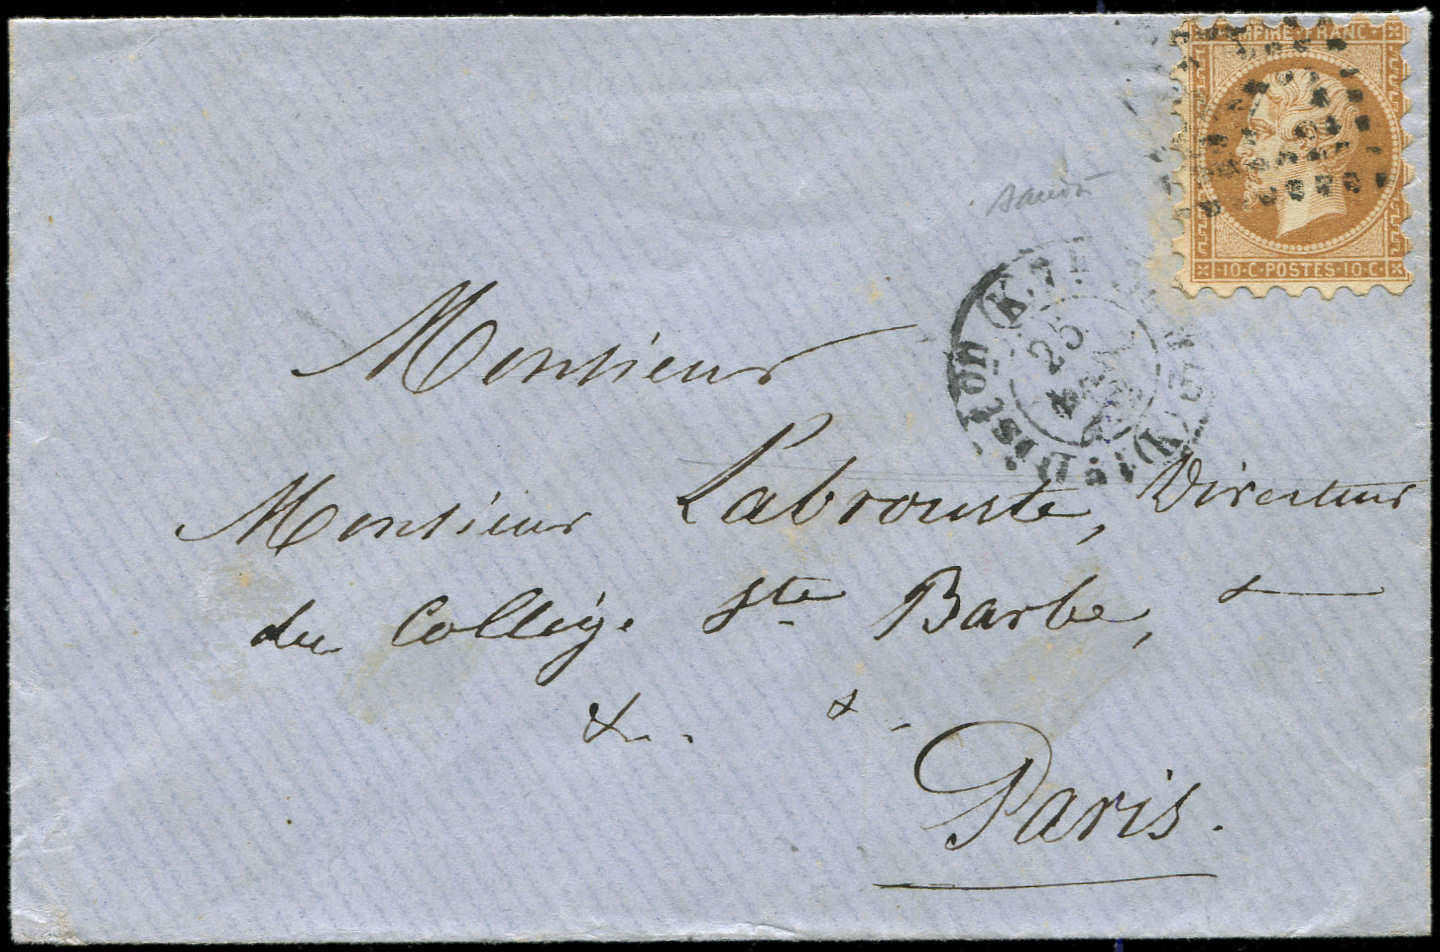 EMPIRE FRANC
10·C·POSTES·10·C
Distion
25
Monsieur
Monsieur Labrouste, Directeur
du Collége Ste Barbe,
&. &.
Paris.